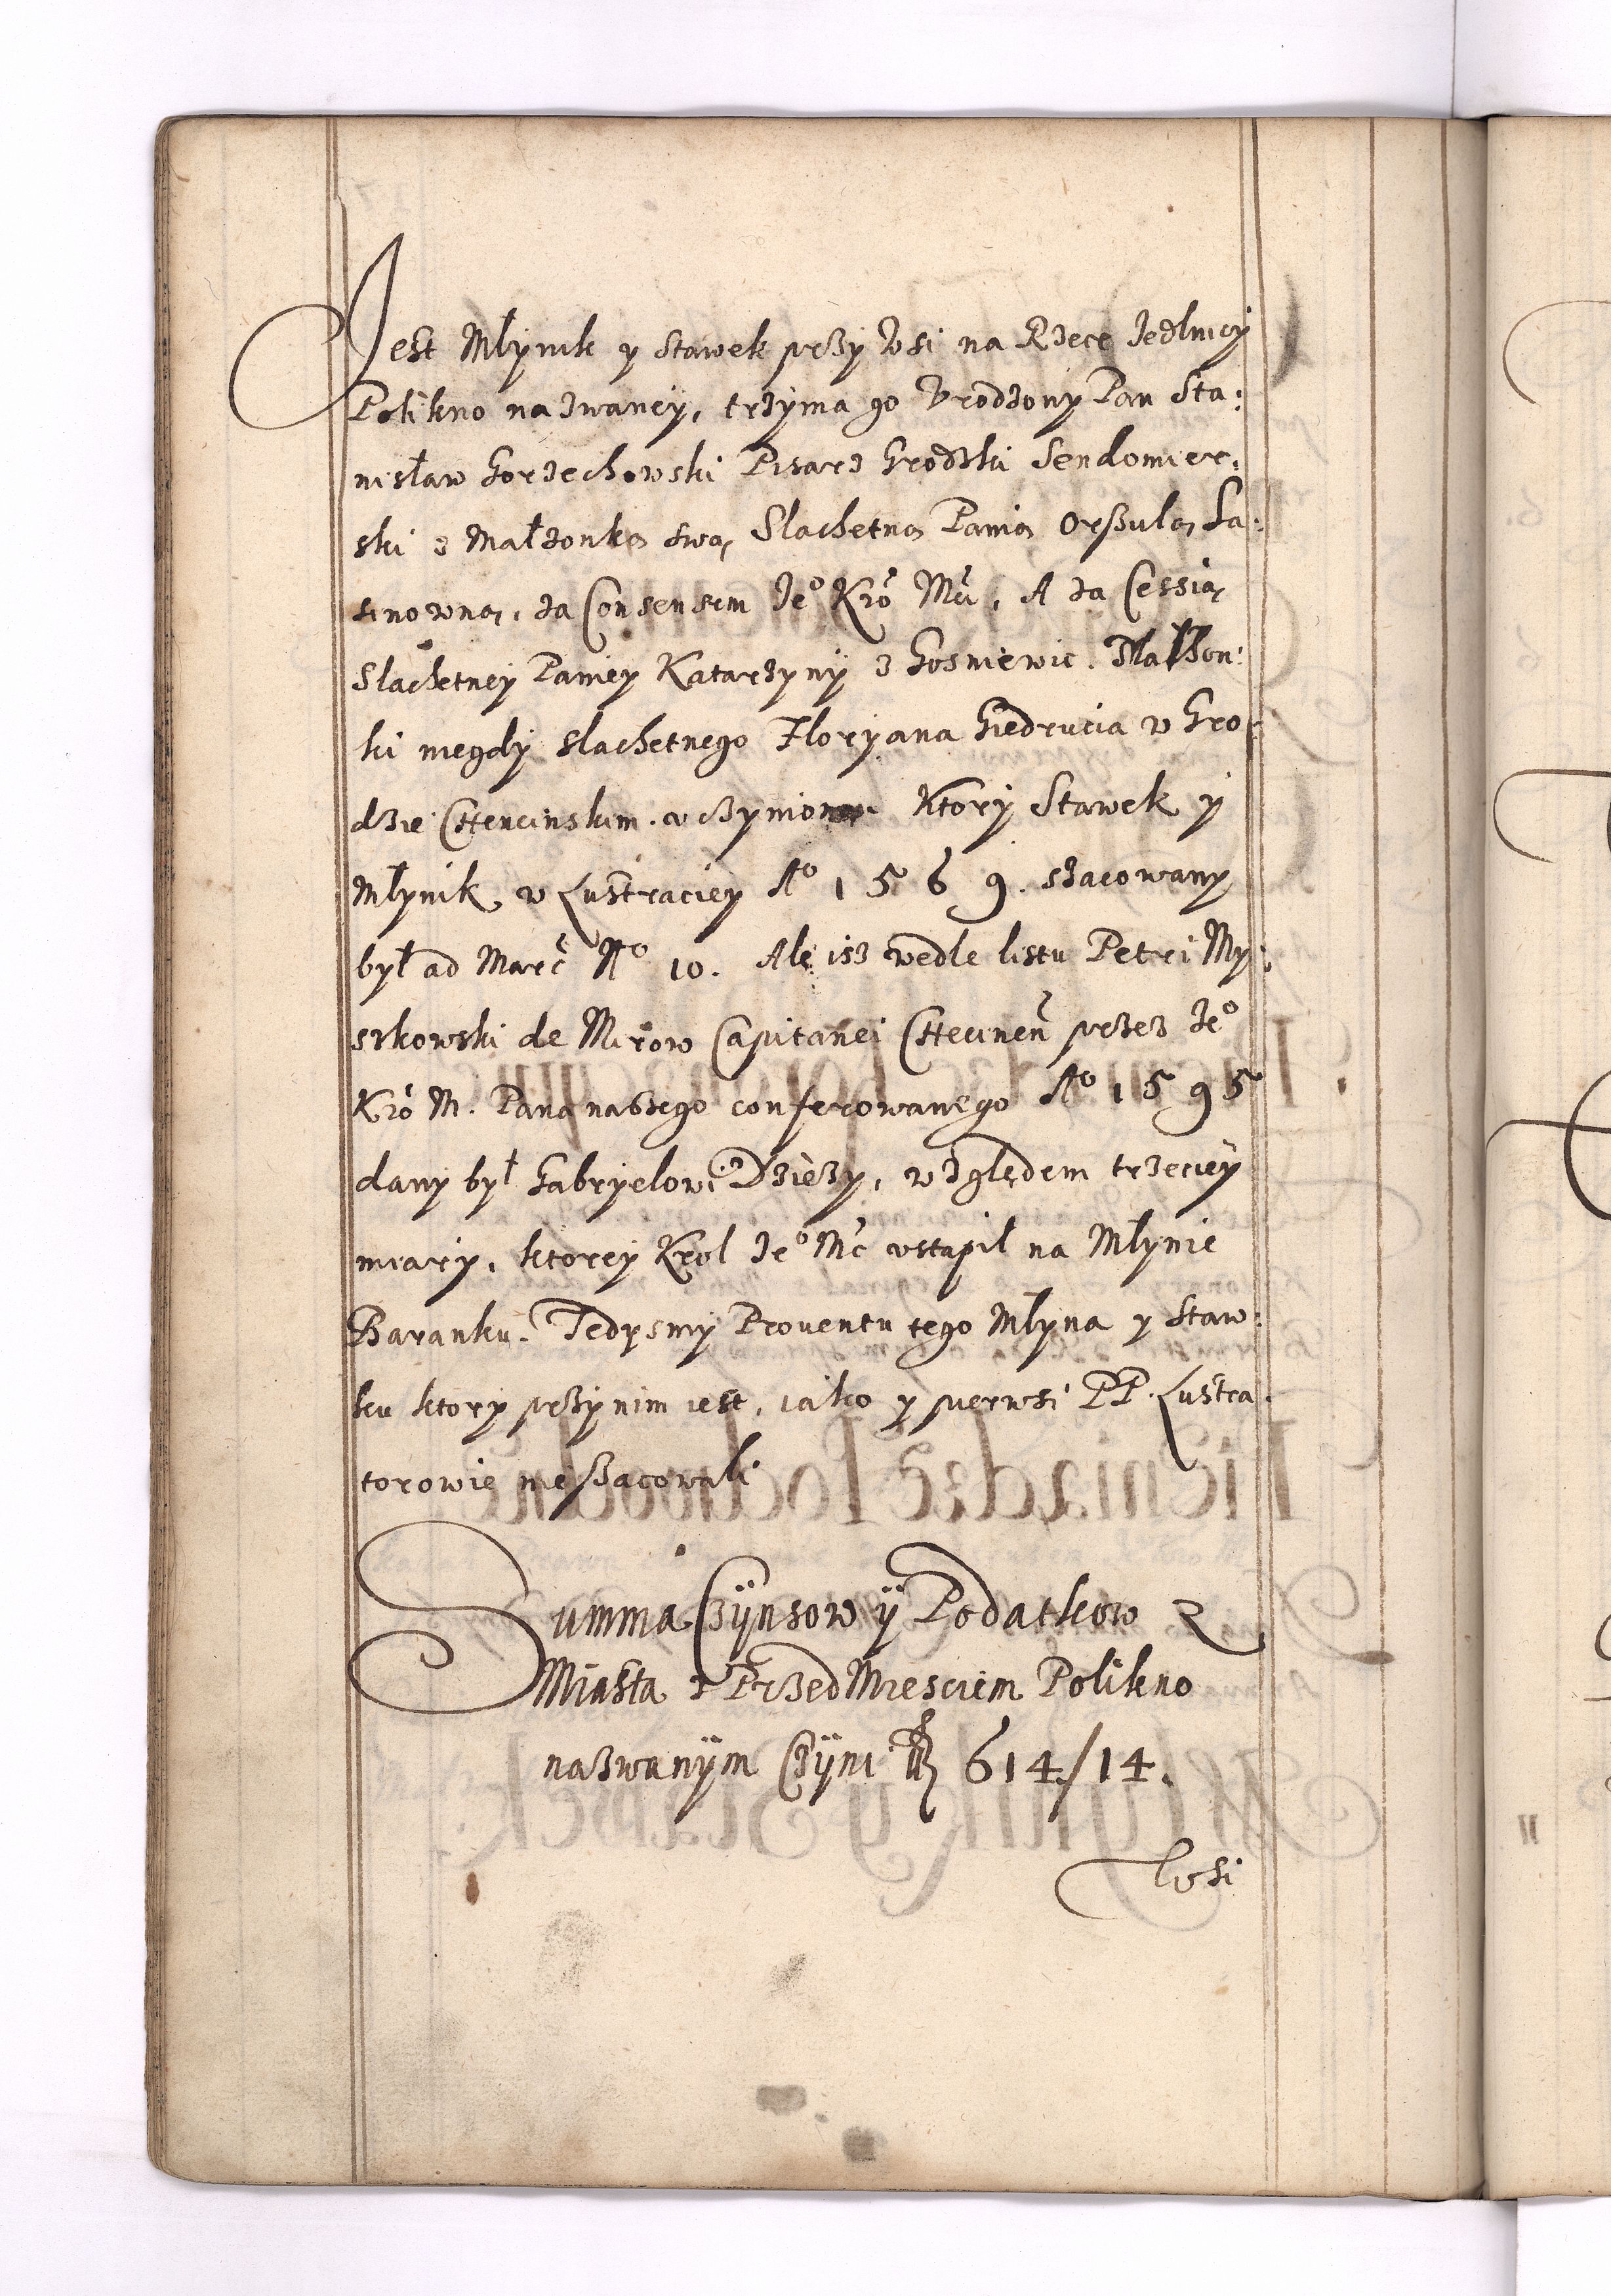 Jest Młynik y Stawek przy Wsi na Rzece Jedlnicy
Polikno nazwaney, trzyma go Vrodzony Pan Sta:
nisław Gorzechowski Pisarz Grodzki Sendomier:
ski z Małzonką swą Slachetną Panią Orszulą Ła:
sinowną, za Consensem Jeº Kró Mći, A za Cessią
Slachetney Paniey Katarzyny z Gosniewic. Małzon:
ki niegdy slachetnego Floryana Giedrucia w Gro:
dzie Chencinskim vczynioną. Ktory Stawek y
Młynik w Lustraciey Aº 1569. szacowany
był ad Marc̃ Nº 10. Ale isz wedle listu Petri My:
szkowski de Mirow Capitanei Checineñ przez Jeº
Kró M. Pana naszego conferowanego Aº 1595
dany był Gabryelowi Dzieży, względem trzeciey
miary, ktorey Krol Jeº Mć vstąpił na Młynie
Baranku. Tedysmy Prouentu tego Młyna y Staw:
ku ktory przy nim iest, iako y pierwsi PP. Lustra:
torowie nieszacowali
Summa Czÿnsow ÿ Podatkow z
Miasta z PrzedMiesciem Polikno
nazwanÿm Czÿni 614/14.
Wsi